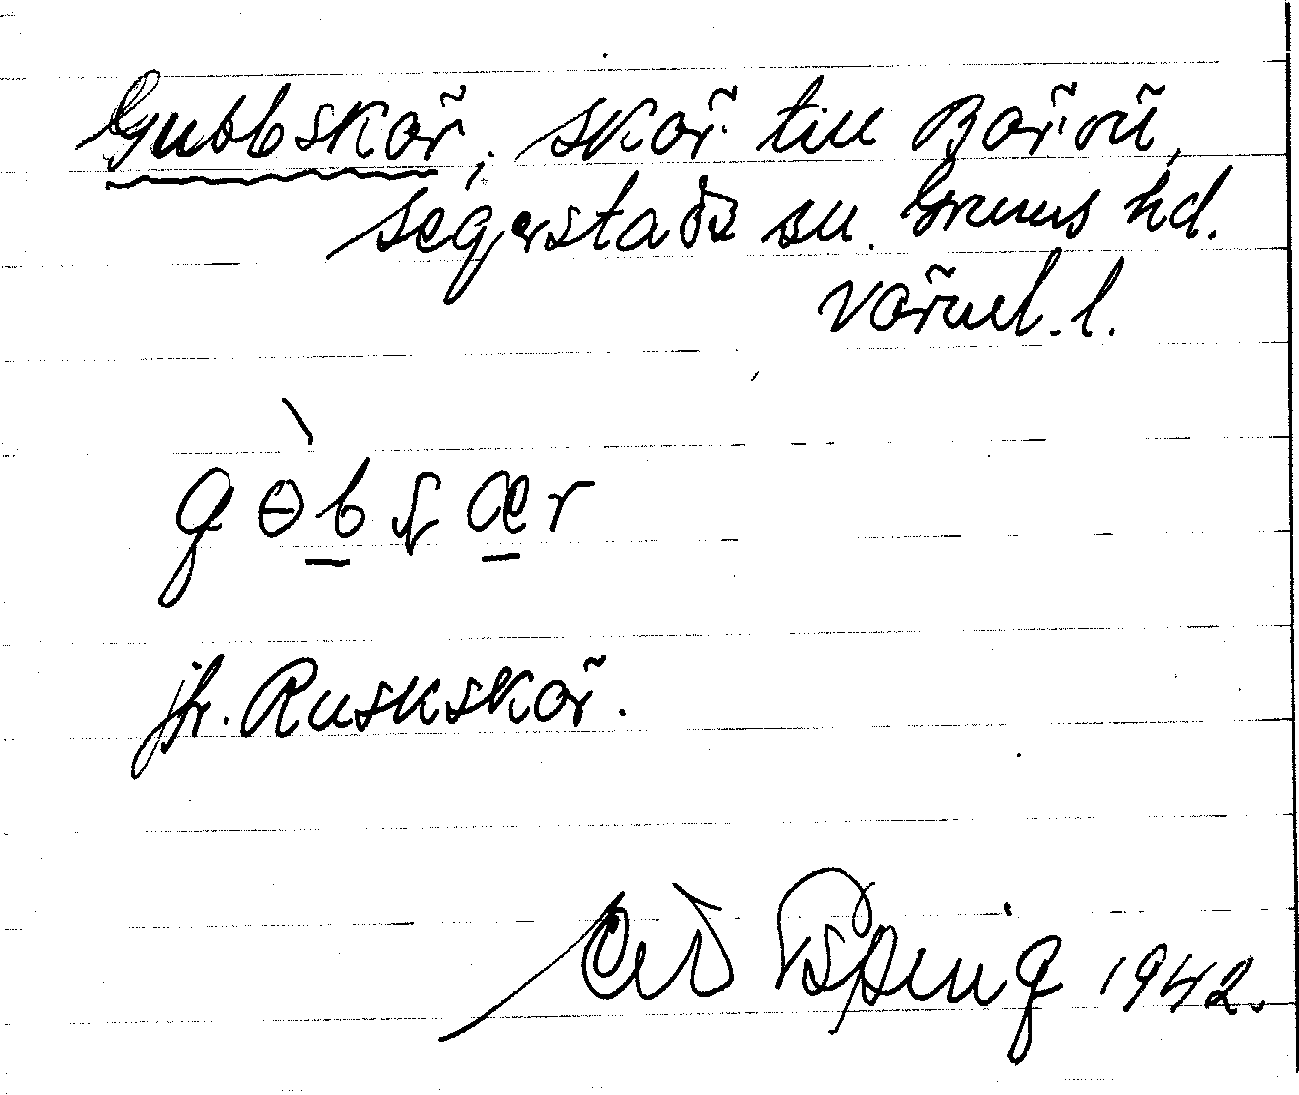 Gubbskär, skär till Bärön,
Segerstads sn. Grums hd.
Värml. l.
gɵ̀bʂær
jfr. Ruskskär.
1942.